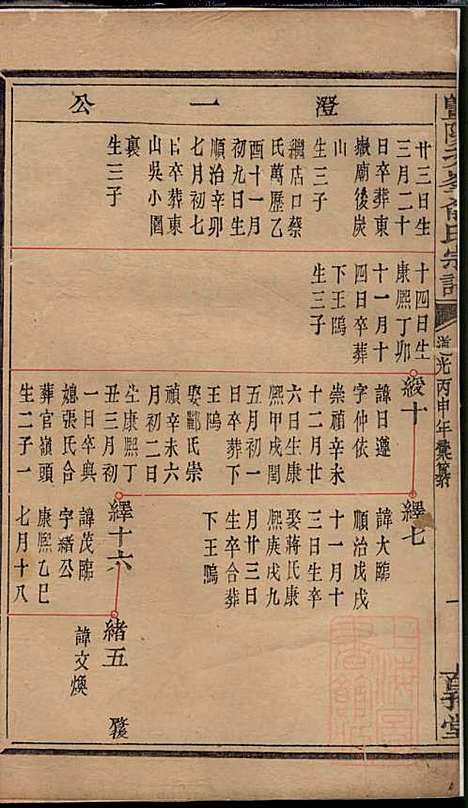 澄一公
廿三日生
三月二十
日卒葬東
嶽廟後炭
山
生三子
繼店口蔡
氏萬歷乙
酉十一月
初九日生
順治辛卯
七月初七
日卒葬東
山吳小園
裏
生三子
十四日生
康熙丁卯
十一月十
四日卒葬
下王鴎
生三子
緩十
諱日遵
字仲依
崇禎辛未
十二月廿
六日生康
熙甲戌閏
五月初一
日卒葬下
王鴎
娶酈氏崇
禎辛未六
月初二日
生康熙丁
丑三月初
一日卒與
媳張氏合
葬官嶺頭
生二子一
繹七
諱大臨
順治戊戌
十一月十
三日生卒
娶蔣氏康
熙庚戌九
月廿三日
生卒合葬
下王鴎
繹十六
諱茂臨
字緒公
康熙乙巳
七月十八
緒五
諱文煥
氏宗譜
道光丙申年彙纂
一
堂